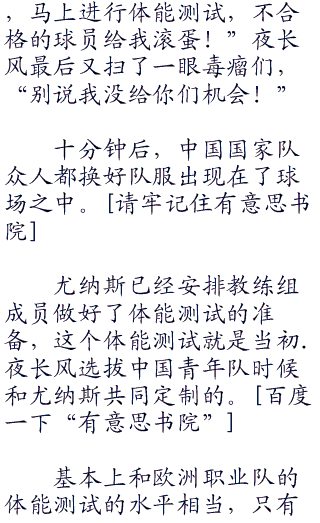 ，马上进行体能测试，不合
格的球员给我滚蛋！”夜长
风最后又扫了一眼毒瘤们，
“别说我没给你们机会！”
十分钟后，中国国家队
众人都换好队服出现在了球
场之中。[请牢记住有意思书
院]
尤纳斯已经安排教练组
成员做好了体能测试的准
备，这个体能测试就是当初.
夜长风选拔中国青年队时候
和尤纳斯共同定制的。[百度
一下“有意思书院”]
基本上和欧洲职业队的
体能测试的水平相当，只有